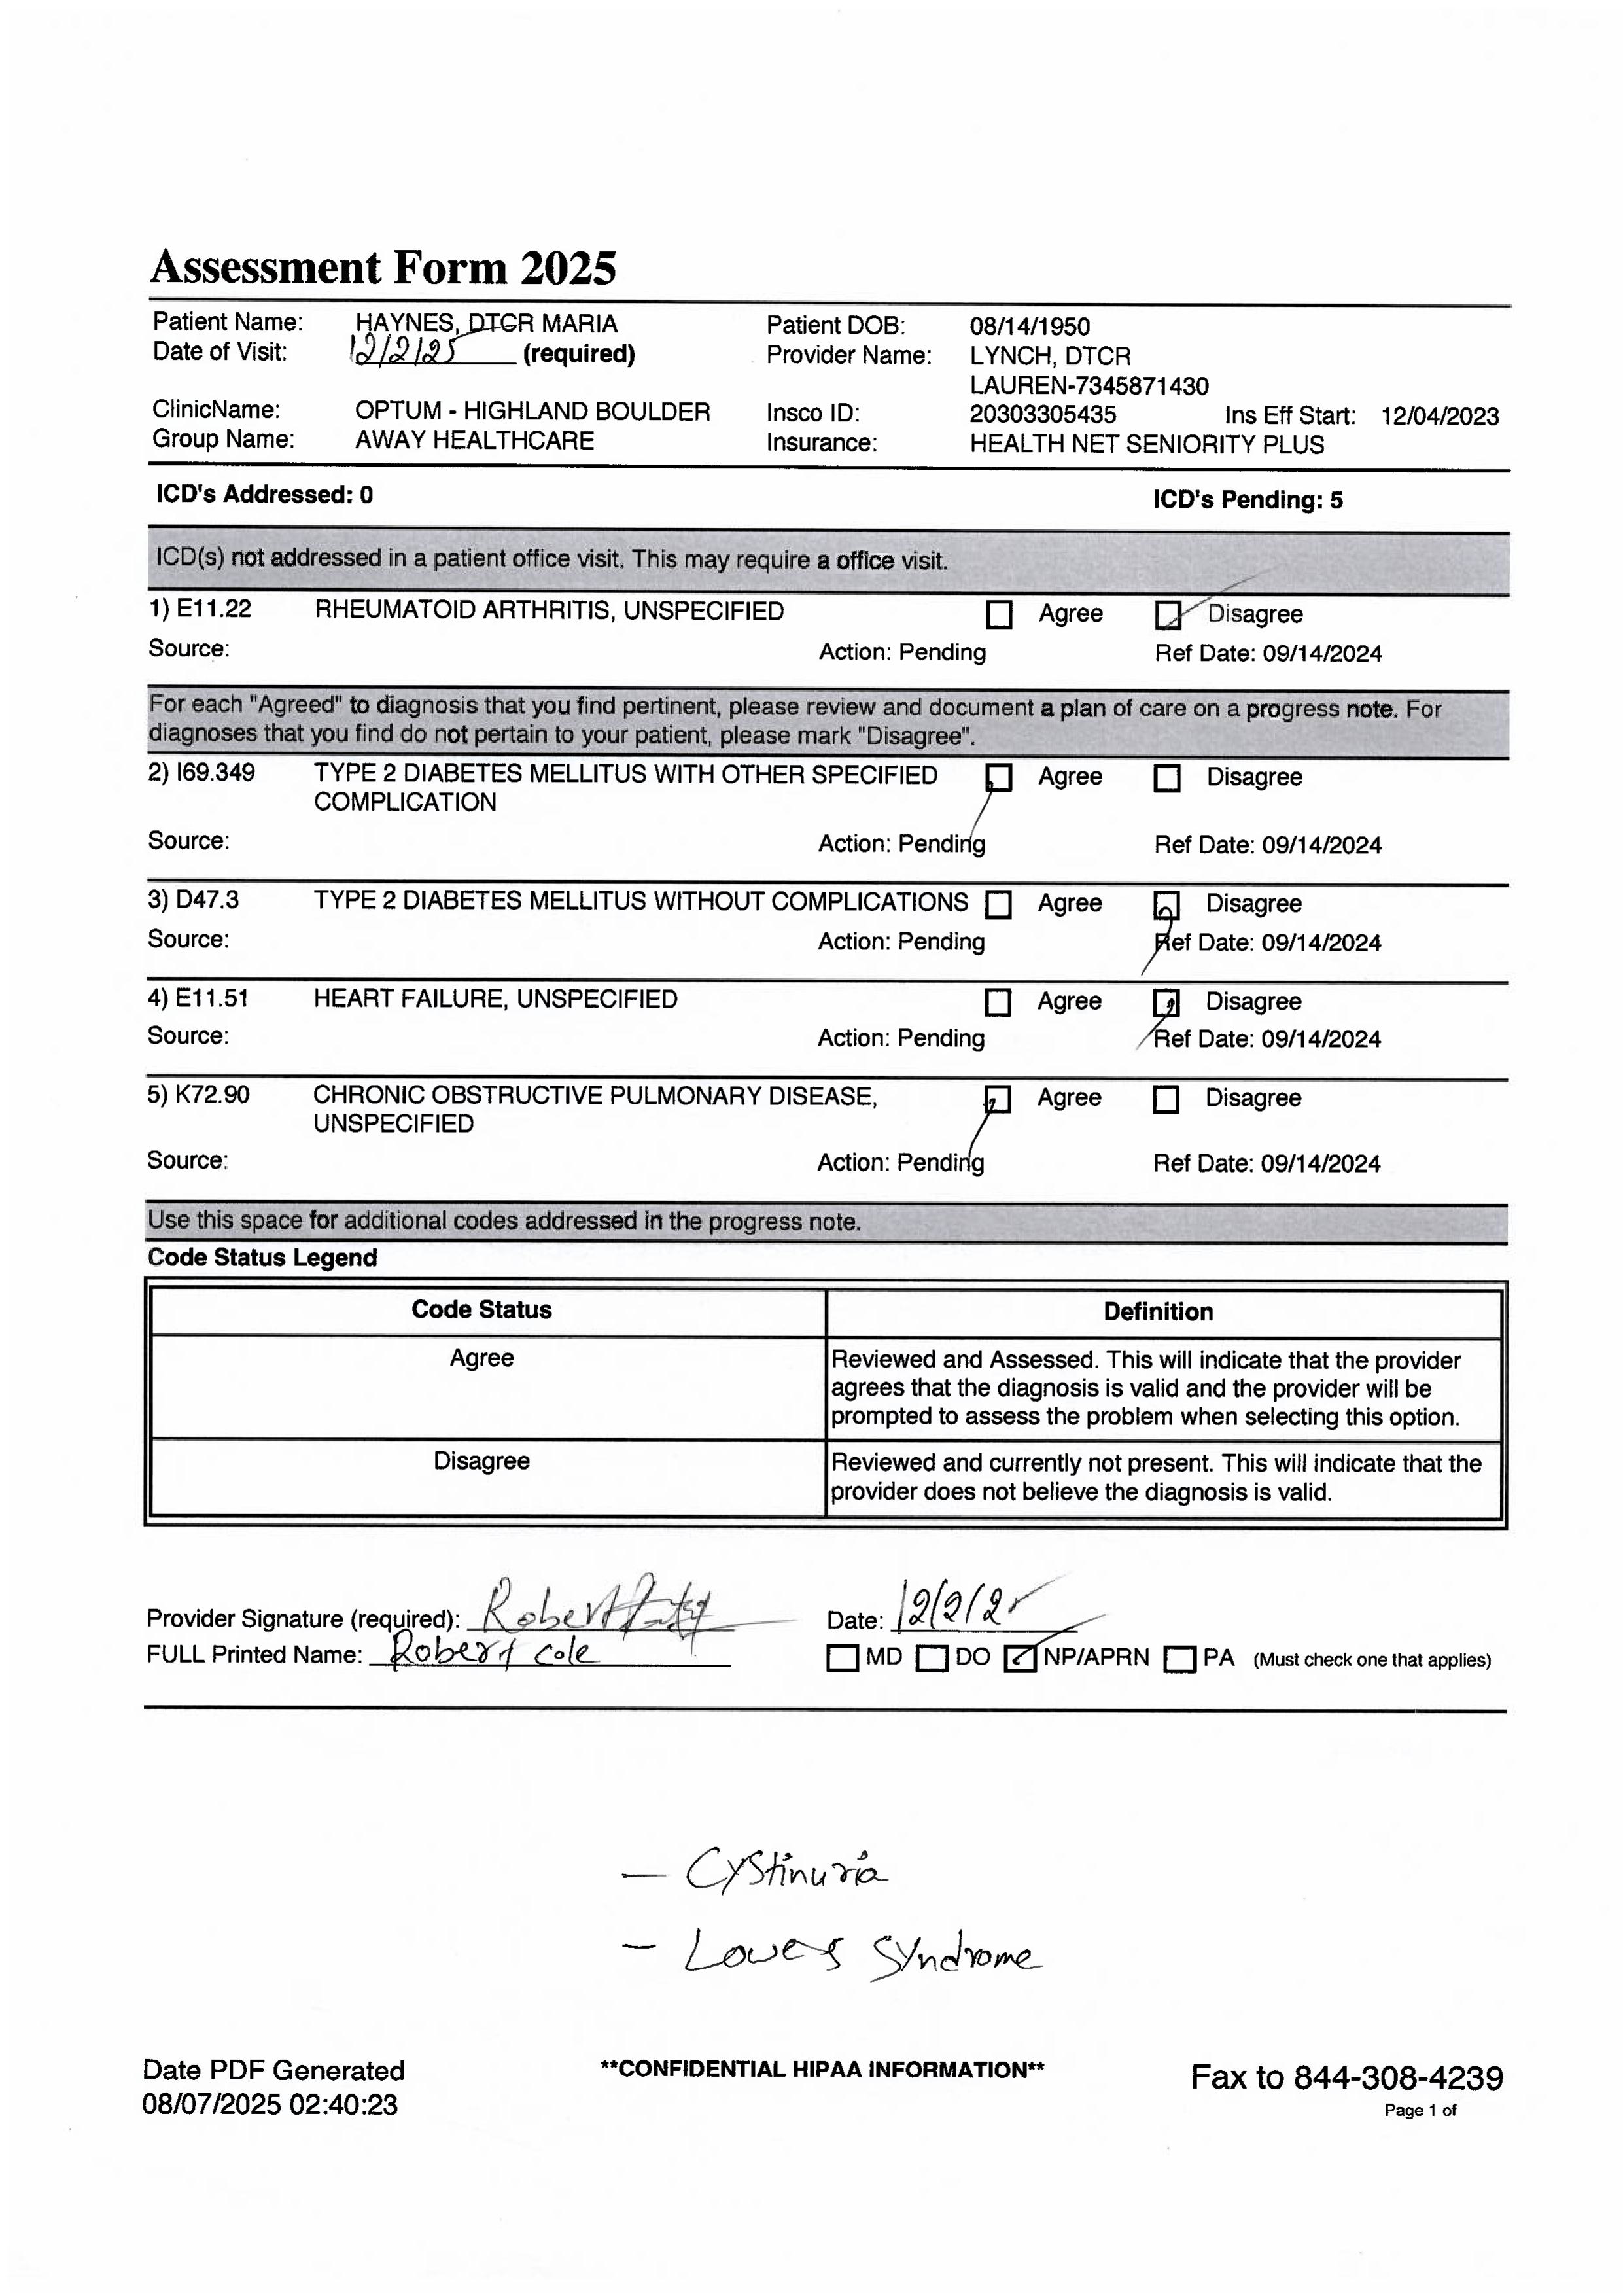 Assessment Form 2025
Patient Name: HAYNES, DTCR MARIA Patient DOB: 08/14/1950
Date of Visit: 12/2/25 (required) Provider Name: LYNCH, DTCR
LAUREN-7345871430
ClinicName: OPTUM - HIGHLAND BOULDER Insco ID: 20303305435 Ins Eff Start: 12/04/2023
Group Name: AWAY HEALTHCARE Insurance: HEALTH NET SENIORITY PLUS
ICD's Addressed: 0 ICD's Pending: 5
ICD(s) not addressed in a patient office visit. This may require a office visit.
1) E11.22 RHEUMATOID ARTHRITIS, UNSPECIFIED Agree Disagree
Source: Action: Pending Ref Date: 09/14/2024
For each "Agreed" to diagnosis that you find pertinent, please review and document a plan of care on a progress note. For
diagnoses that you find do not pertain to your patient, please mark "Disagree".
2) I69.349 TYPE 2 DIABETES MELLITUS WITH OTHER SPECIFIED Agree Disagree
COMPLICATION
Source: Action: Pending Ref Date: 09/14/2024
3) D47.3 TYPE 2 DIABETES MELLITUS WITHOUT COMPLICATIONS Agree Disagree
Source: Action: Pending Ref Date: 09/14/2024
4) E11.51 HEART FAILURE, UNSPECIFIED Agree Disagree
Source: Action: Pending Ref Date: 09/14/2024
5) K72.90 CHRONIC OBSTRUCTIVE PULMONARY DISEASE, Agree Disagree
UNSPECIFIED
Source: Action: Pending Ref Date: 09/14/2024
Use this space for additional codes addressed in the progress note.
Code Status Legend
Code Status Definition
Agree Reviewed and Assessed. This will indicate that the provider
agrees that the diagnosis is valid and the provider will be
prompted to assess the problem when selecting this option.
Disagree Reviewed and currently not present. This will indicate that the
provider does not believe the diagnosis is valid.
Provider Signature (required): Robert Date: 12/2/2
FULL Printed Name: Robert Cole MD DO NP/APRN PA (Must check one that applies)
- Cystinuria
- Lowe's Syndrome
Date PDF Generated **CONFIDENTIAL HIPAA INFORMATION** Fax to 844-308-4239
08/07/2025 02:40:23 Page 1 of